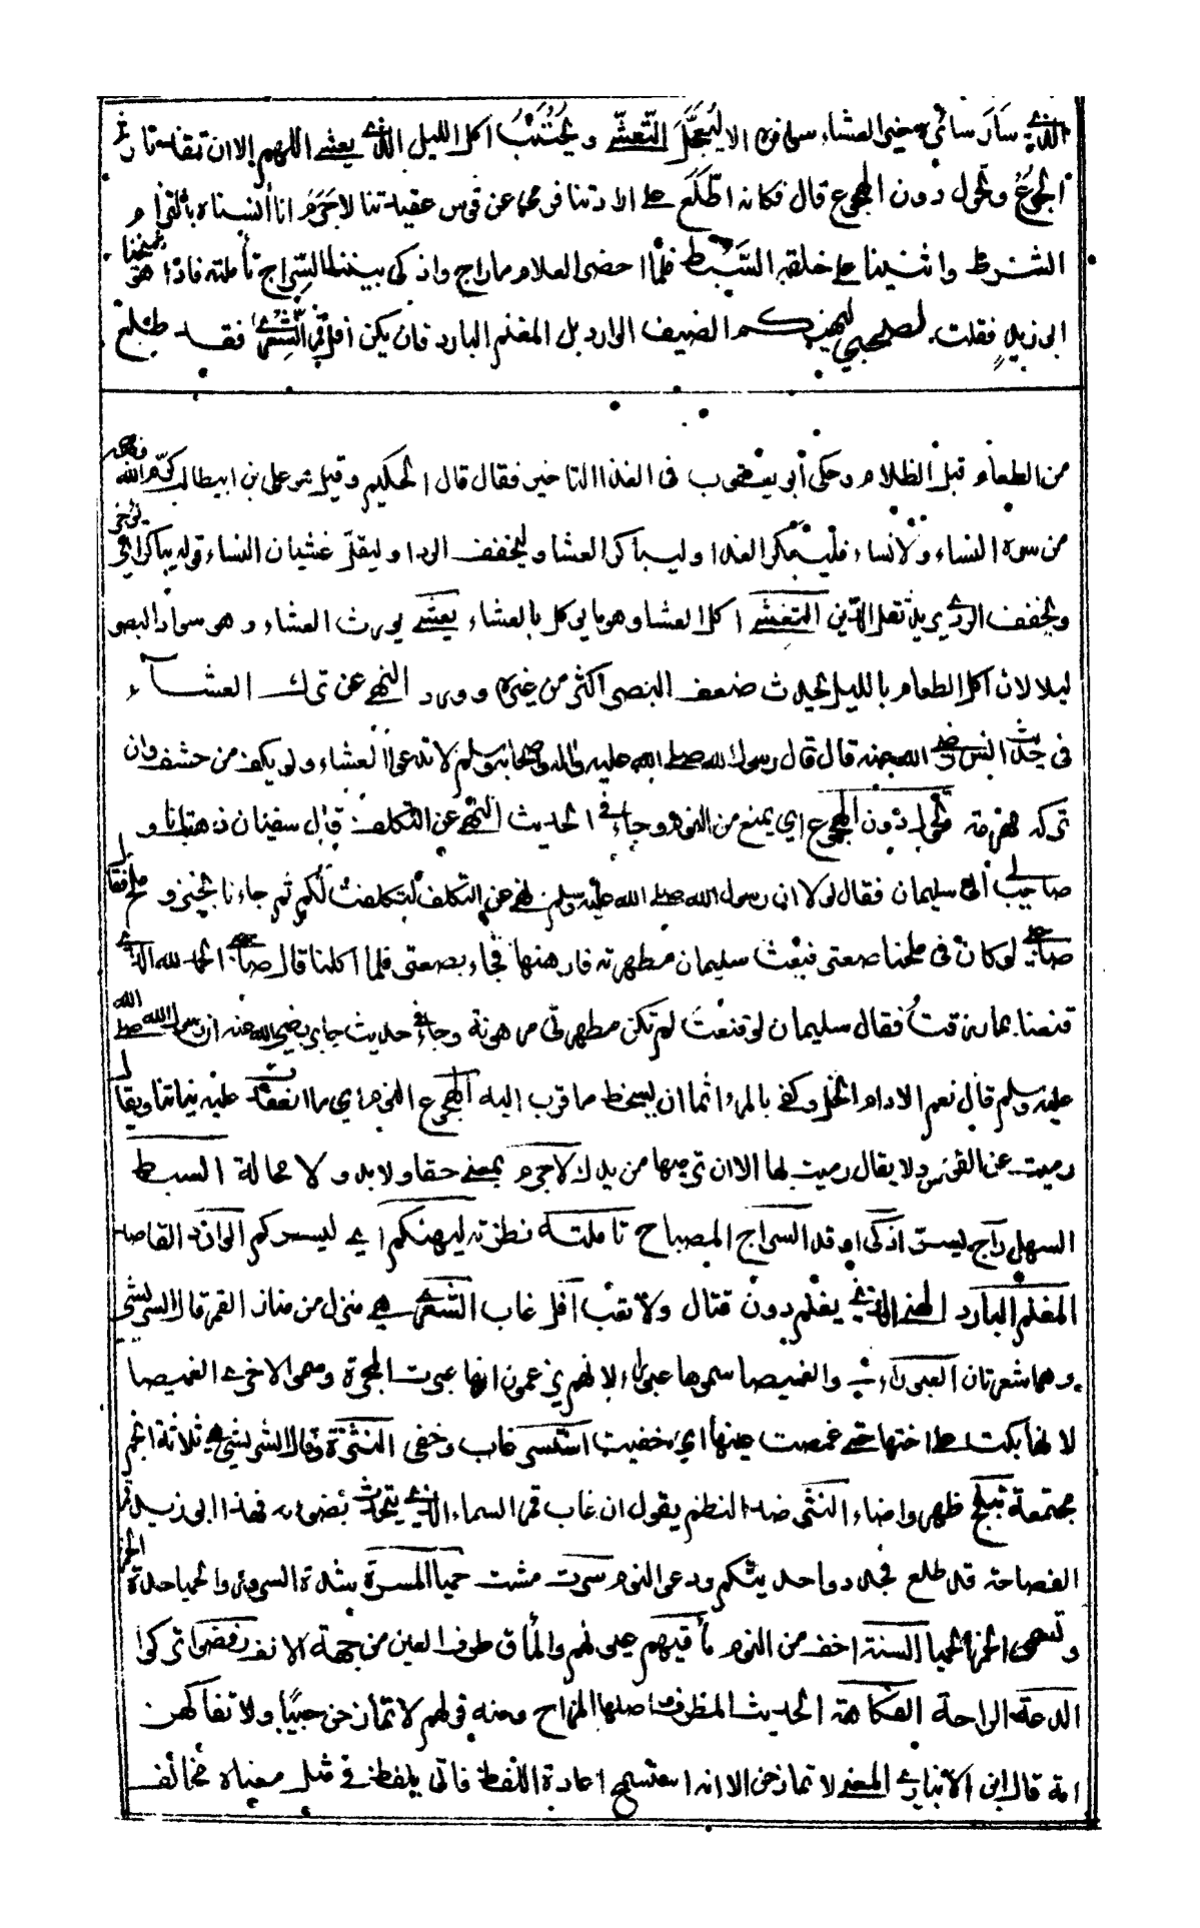 الذي سار سائره خير العشاء سوافره الا ليُعجَّل التعشي ويُجتنب اكل الليل الذي يعشي اللهم الا ان تقد نار
الجوع وتحول دون الهجوع قال فكانه اطلع على ارادتنا فرمى عن قوس عقيدتنا لاجرم انا آنسناه بالتزام
الشرط واثنينا على خلقه السبط فلما احضر الغلام ما راج واذكى بيننا السراج تأملته فاذا هو
ابو زيد فقلت لصحبي ليهنكم الضيف الوارد بل المغنم البارد فان يكن افل قمر الشعرى فقد طلع
من الطعام قبل الظلام وحكى أبو يعقوب في الغذا التاخير فقال قال الحكيم وقيل هو علي بن ابيطالب كرم الله وجهه
من سره النساء ولا نساء فليبكر الغدا وليباكر العشا وليخفف الردا وليقل غشيان النساء قوله يباكر اي
ويخفف الردي يريد ثقل الدين التعشي اكل العشا وهو ما يوكل بالعشاء يعشي يورث العشاء وهو سواد البصر
ليلا لان اكل الطعام بالليل يحدث ضعف البصر اكثر من غيره وورد النهي عن ترك العشاء
في حديث انس رضي الله عنه قال قال رسول الله صلى الله عليه واله واصحابه وسلم لا تدعوا العشاء ولو بكف من حشف فان
تركه مهرمة تحول دون الهجوع اي يمنع من النوم وجاء في الحديث النهي عن التكلف قال سفينان ذهبت انا و
صاحب لي الى سليمان فقال لولا ان رسول الله صلى الله عليه وسلم نهى عن التكلف لتكلفت لكم ثم جاءنا بخبز و ملح فقال
صاحبي لو كان في ملحنا صعتر فبعث سليمان مطهرته فارهنها فجاء بصعتر فلما اكلنا قال صاحبي الحمد لله الذي
قنعنا بما رزقت فقال سليمان لو قنعت لم تكن مطهرتي مرهونة وجاء في حديث جابر رضي الله عنه ان رسول الله صلى الله
عليه وسلم قال نعم الادام الخل وكفى بالمرء اثما ان يسخط ما قرب اليه الهجوع النوم اي ما انعقدت عليه نياتنا ويقال
رميت عن القوس ولا يقال رميت بها الا ان ترميها من يدك لاجرم بمعنى حقا ولا بد ولا محالة السبط
السهل راج ليسر اذكى اوقد السراج المصباح تاملته نظرته ليهنكم اي ليسركم الوارد القاصد
المغنم البارد الهني الذي يغنم دون قتال ولا تعب افل غاب الشعرى هي منزل من منازل القمر قال الشريشي
وهما شعرتان العبور والغميصا سموها عبورا لانهم يزعمون انها عبرت المجرة وسموا الاخرى الغميصا
لانها بكت على اختها حتى غمصت عينها اي خفيت استسر غاب وخفي النثرة وقال الشريشي هي ثلاثة انجم
مجتمعة تبلج ظهر واضاء النثر ضد النظم يقول ان غاب قمر السماء الذي يتحدث بضوئه فهذا ابو زيد قمر
الفصاحة قد طلع فجدد واحديثكم ودعوا النوم سرت مشت حميا المسرة شدة السرور والحميا حدة الخمر
وتسمى الخمر الحميا السنة اخف من النوم مأقيهم عيونهم والمأق طرف العين من جهة الانف رفضوا تركوا
الدعة الراحة الفكاهة الحديث المظرف اصلها المزاح ومنه قولهم لا تمازحن حبيبا ولا تفاكهن
امة قال ابن الانباري المعنى لا تمازحن الا انه استسمج اعادة اللفظ فاتى بلفظ في مثل معناه مخالف